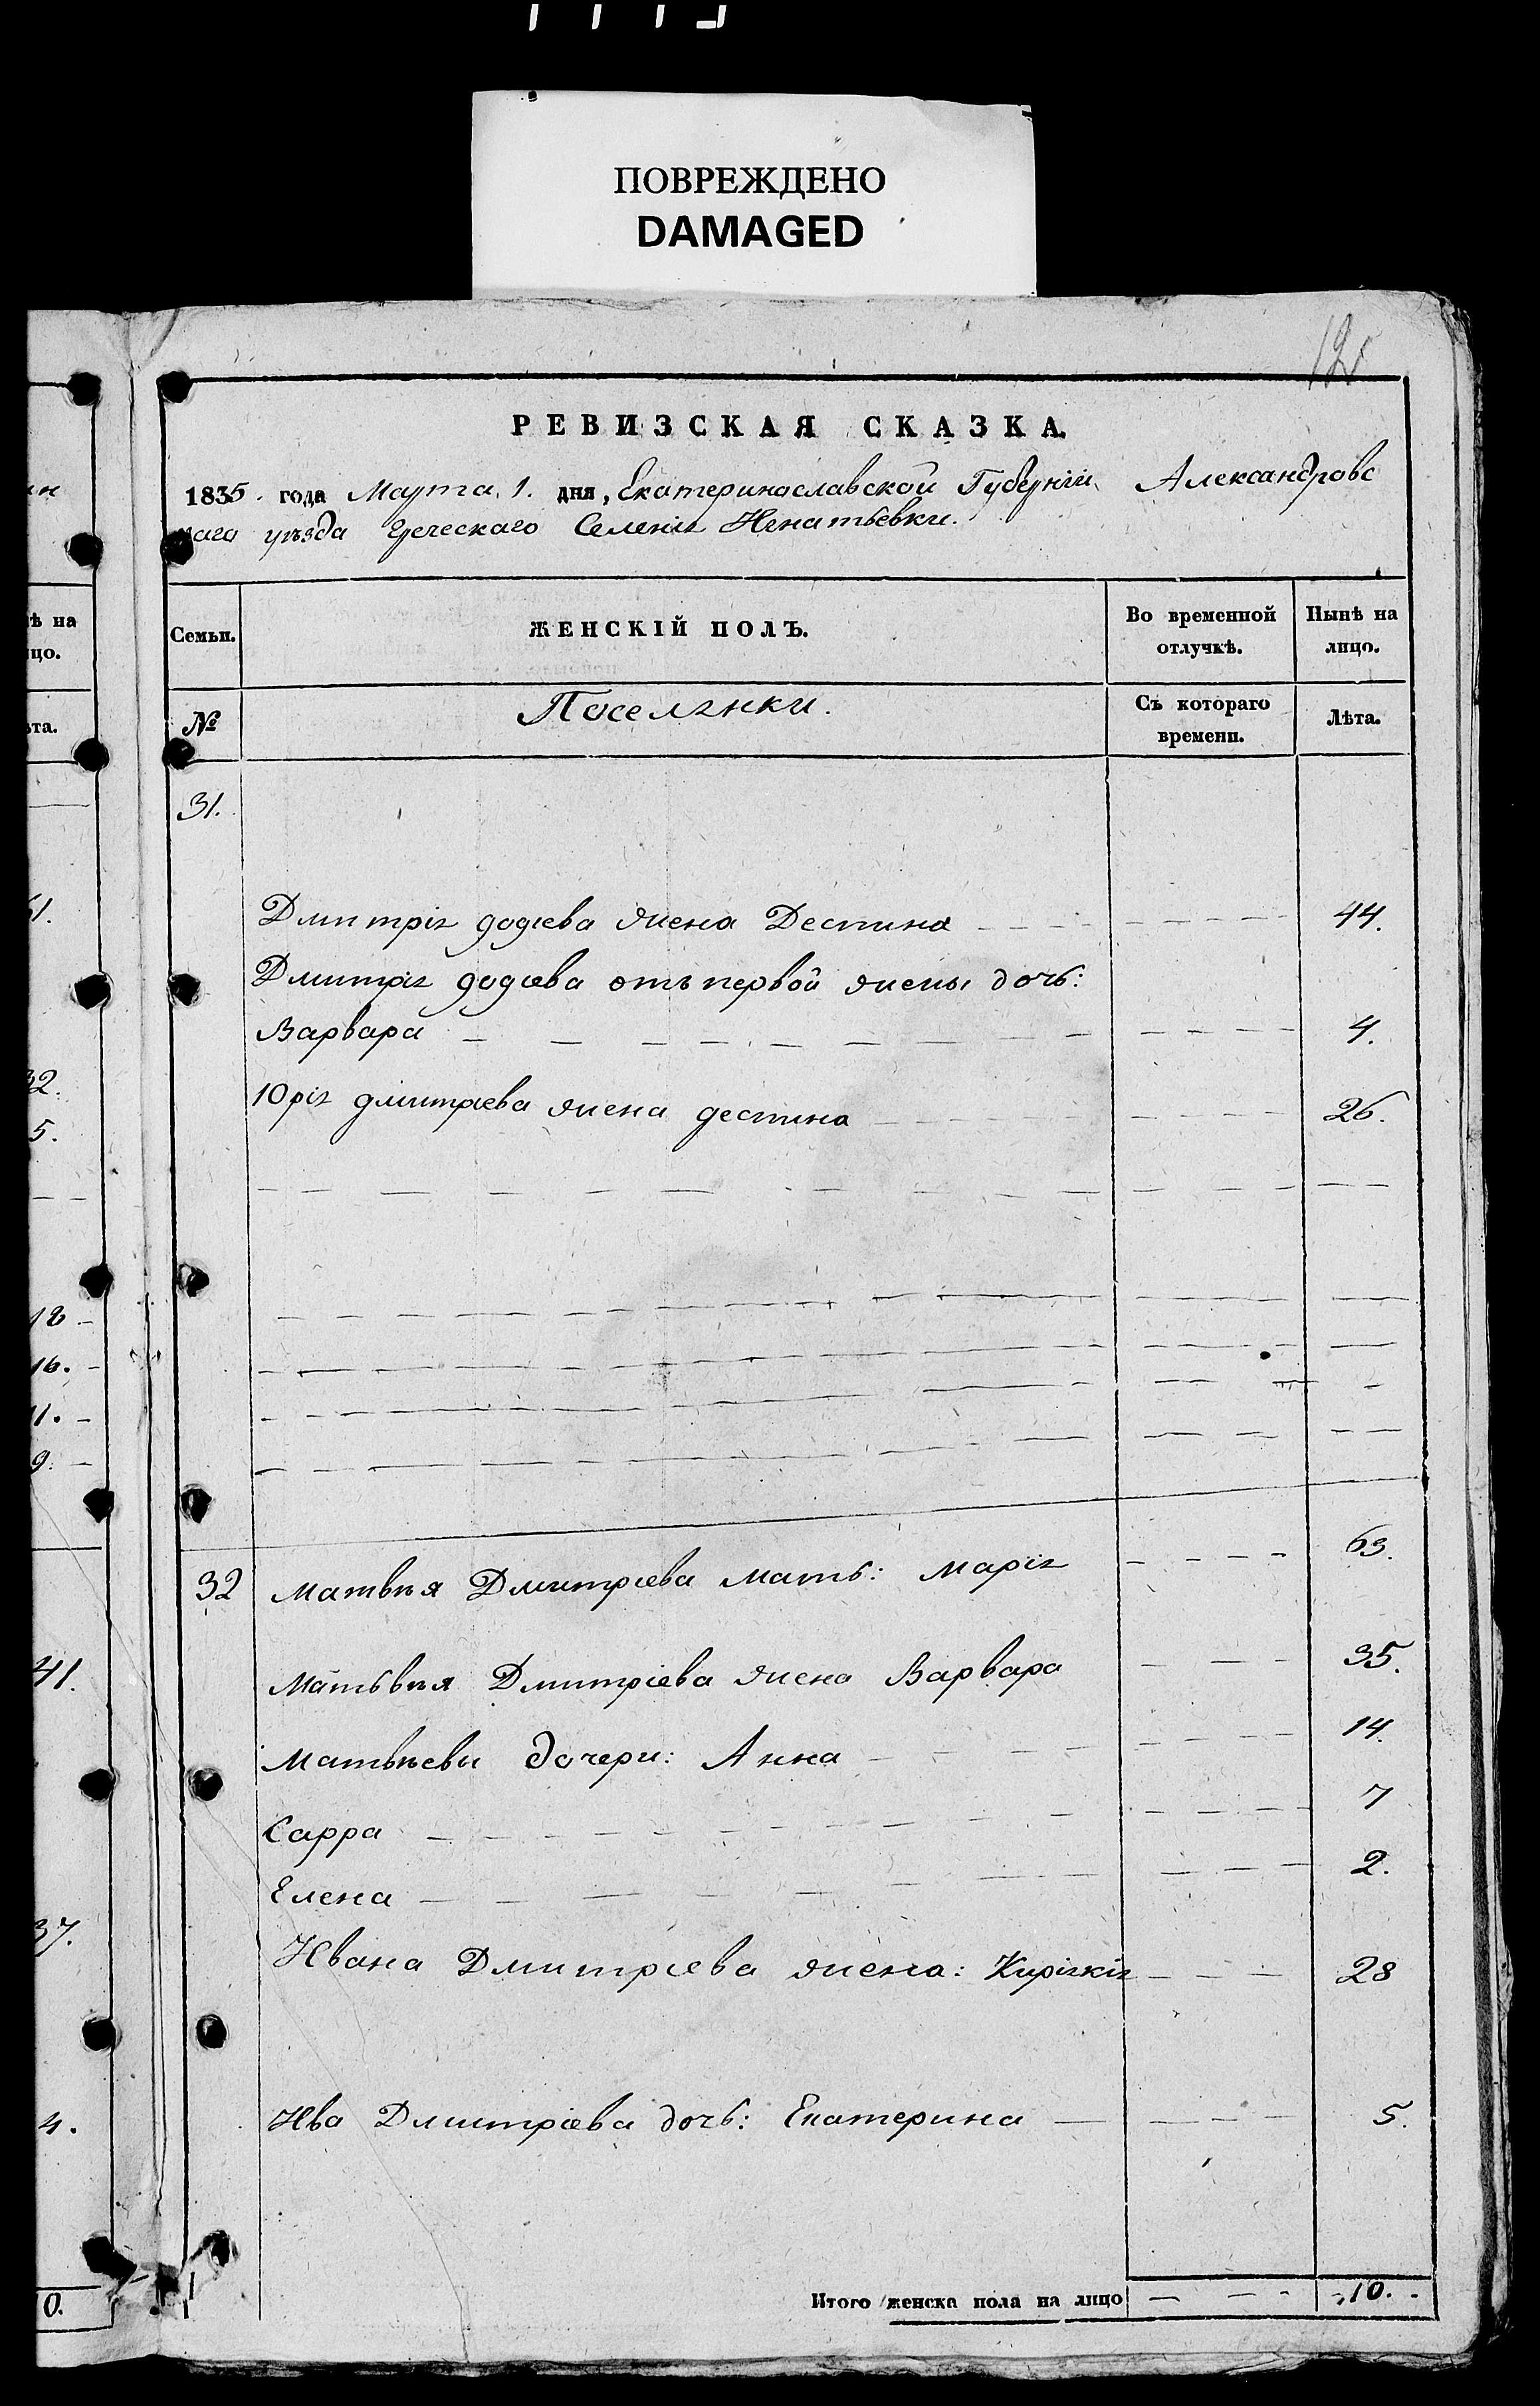 ПОВРЕЖДЕНО
DAMAGED
РЕВИЗСКАЯ СКАЗКА.
1835. года Марта, 1. дня, Екатеринославской Губерніи Александровс
каго уѣзда Греческаго Селенія Игнатьевки.
Семьи.
ЖЕНСКІЙ ПОЛЪ.
Во временной отлучкѣ.
Нынѣ на лицо.
№
Поселянки.
Съ котораго времени.
Лѣта.
31.
Дмитрія жена Деспина 44.
Дмитрія отъ первой жены дочь:
Варвара 4.
Юрія дмитріева жена деспина 26.
32 Матвѣя Дмитріева мать: Марія 63.
Матьвѣя Дмитріева жена Варвара 35.
Матвѣевы дочери: Анна 14.
Сарра 7
Елена 2.
Ивана Дмитріева жена: Киріякія 28
Ива Дмитріева дочь: Екатерина 5.
Итого женска пола на лицо 10.